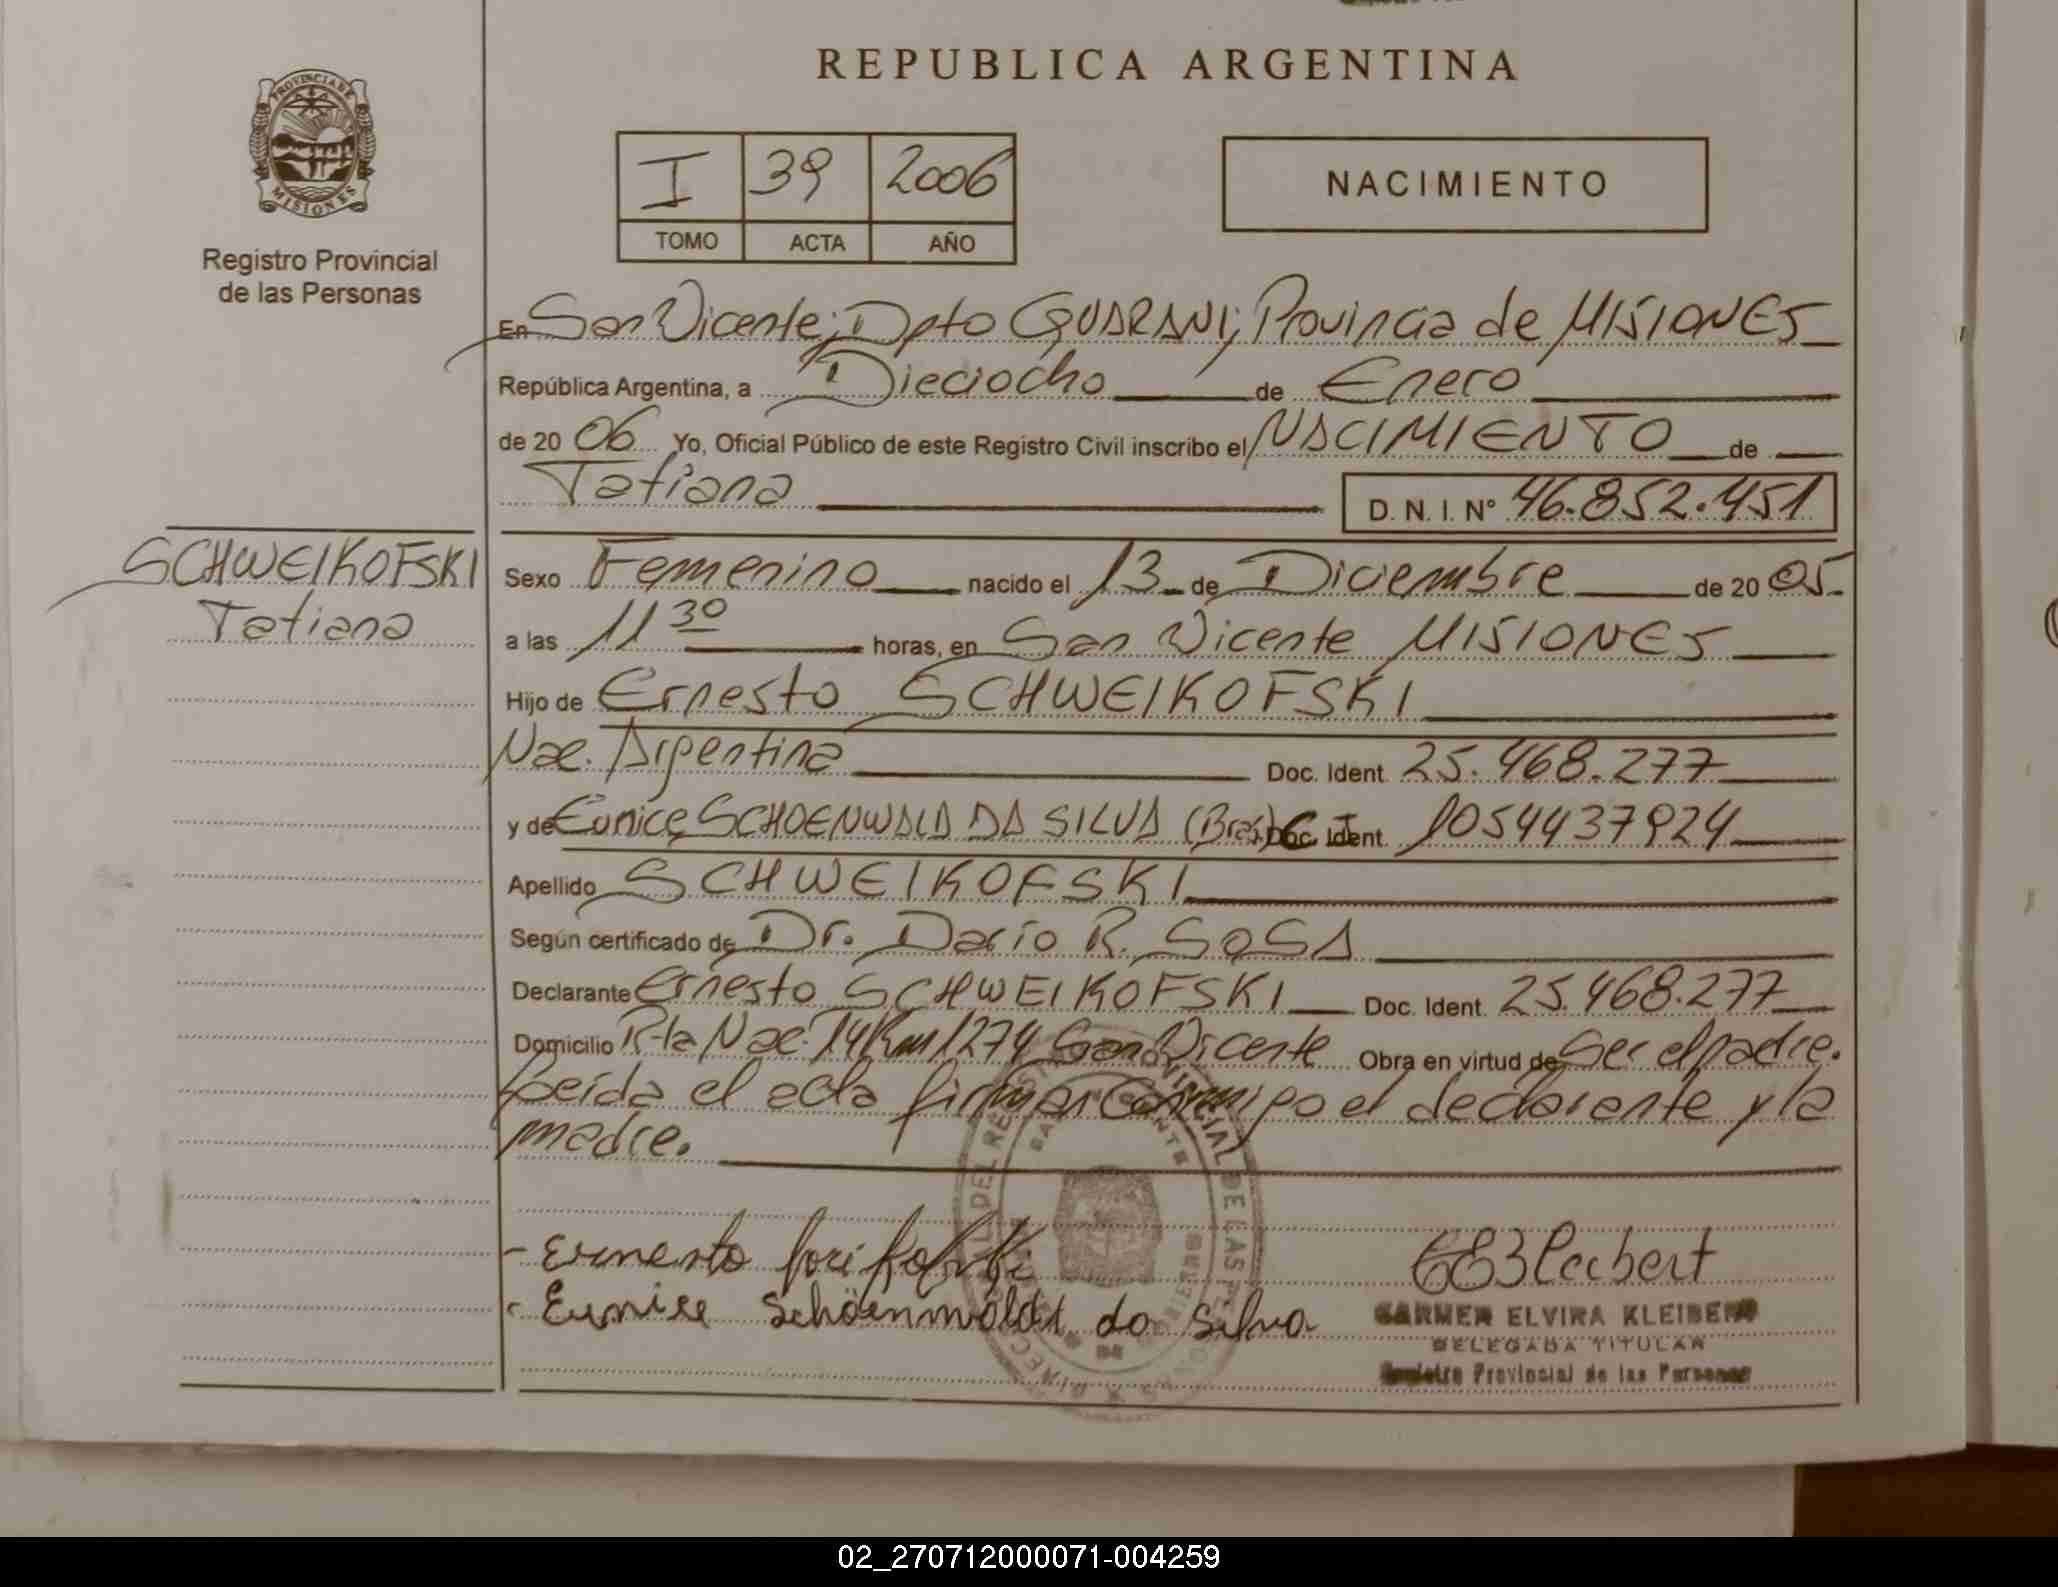 REPUBLICA ARGENTINA
PROVINCIA DE
MISIONES
Registro Provincial
de las Personas
I 39 2006
TOMO ACTA AÑO
NACIMIENTO
En San Vicente; Dpto GUARANI; Provincia de MISIONES
República Argentina, a Dieciocho de Enero
de 2006 Yo, Oficial Público de este Registro Civil inscribo el NACIMIENTO de
Tatiana
D. N. I. N° 46.852.451
SCHWEIKOFSKI
Tatiana
Sexo Femenino nacido el 13 de Diciembre de 2005
a las 11 30 horas, en San Vicente MISIONES
Hijo de Ernesto SCHWEIKOFSKI
Nac. Argentina Doc. Ident. 25.468.277
y de Eunice SCHOENWALD DA SILVA (Bras) C I Doc. Ident. 1054437924
Apellido SCHWEIKOFSKI
Según certificado de Dr. Dario R. SOSA
Declarante Ernesto SCHWEIKOFSKI Doc. Ident. 25.468.277
Domicilio Rta Nac. 14 Km 1274 San Vicente Obra en virtud de Ser el padre.
Leída el acta firman conmigo el declarante y la
madre.
- Ernesto
- Eunice Schöenwaldt da Silva
CARMEN ELVIRA KLEIBERT
DELEGADA TITULAR
Registro Provincial de las Personas
02_270712000071-004259